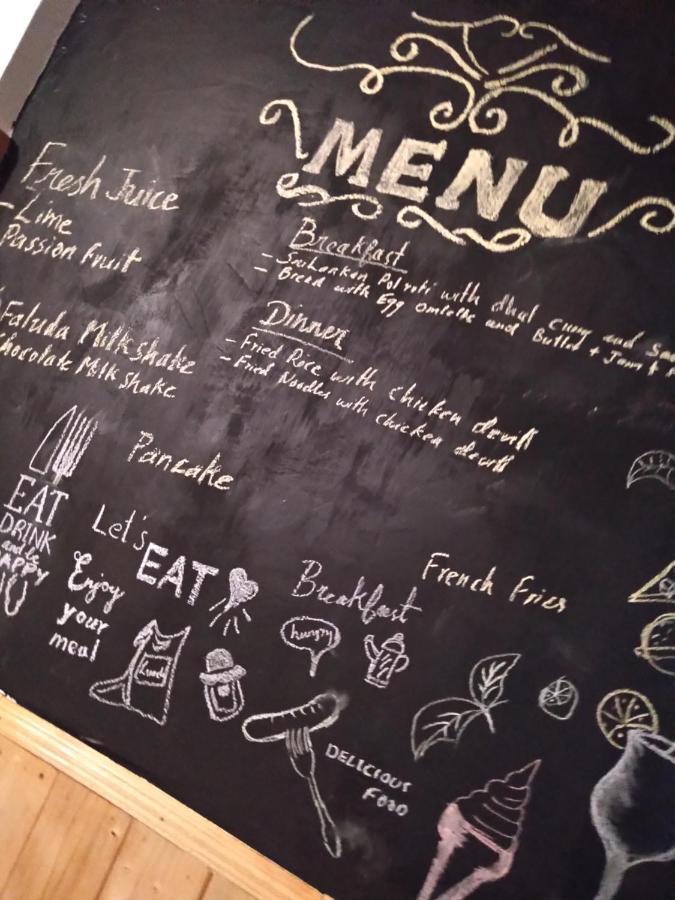 MENU
Fresh Juice
- Lime
Passion Fruit
Faluda Milkshake
Chocolate Milk Shake
Breakfast
- Srilankan Pol roti with dhal curry and
- Bread with Egg omlette and Butter + Jam +
Dinner
- Fried Rice with chicken devill
- Fried Noodles with chicken devill
Pancake
EAT
DRINK
and be
Let's
EAT
Enjoy
your
meal
Lunch
Breakfast
hungry
French Fries
DELICIOUS
FOOD